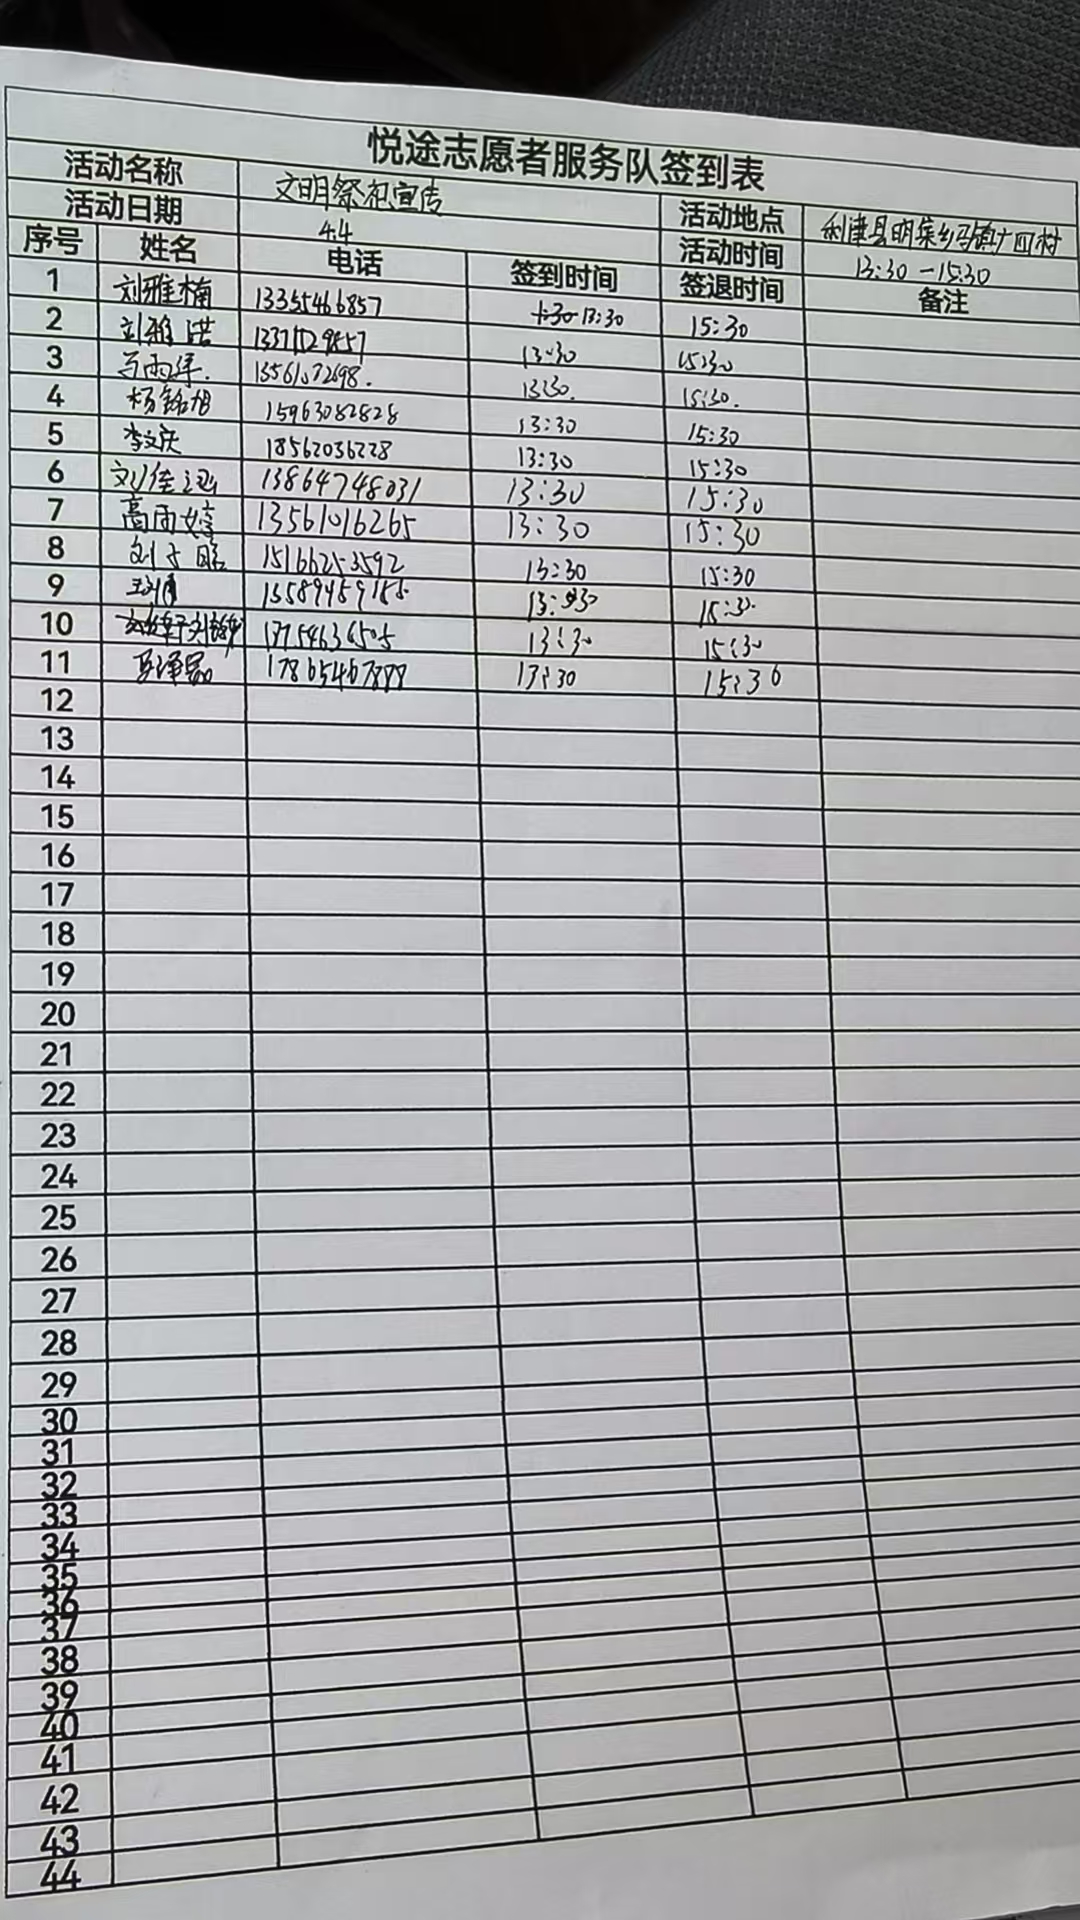 悦途志愿者服务队签到表
活动名称 文明祭祀宣传 活动地点 利津县明集乡马镇广四村
活动日期 4.4 活动时间 13:30-15:30
序号 姓名 电话 签到时间 签退时间 备注
1 刘雅楠 13355466857 13:30 15:30
2 刘雅诺 13:30 15:30
3 13561072698. 13:30. 15:30.
4 杨铭旭 15963082828 13:30 15:30
5 李文庆 18562036228 13:30 15:30
6 刘佳 13864748031 13:30 15:30
7 高雨婷 13561016265 13:30 15:30
8 15166253592 13:30 15:30
9 15:30
10 13:30 15:30
11 17865467888 13:30 15:30
12
13
14
15
16
17
18
19
20
21
22
23
24
25
26
27
28
29
30
31
32
33
34
35
36
37
38
39
40
41
42
43
44